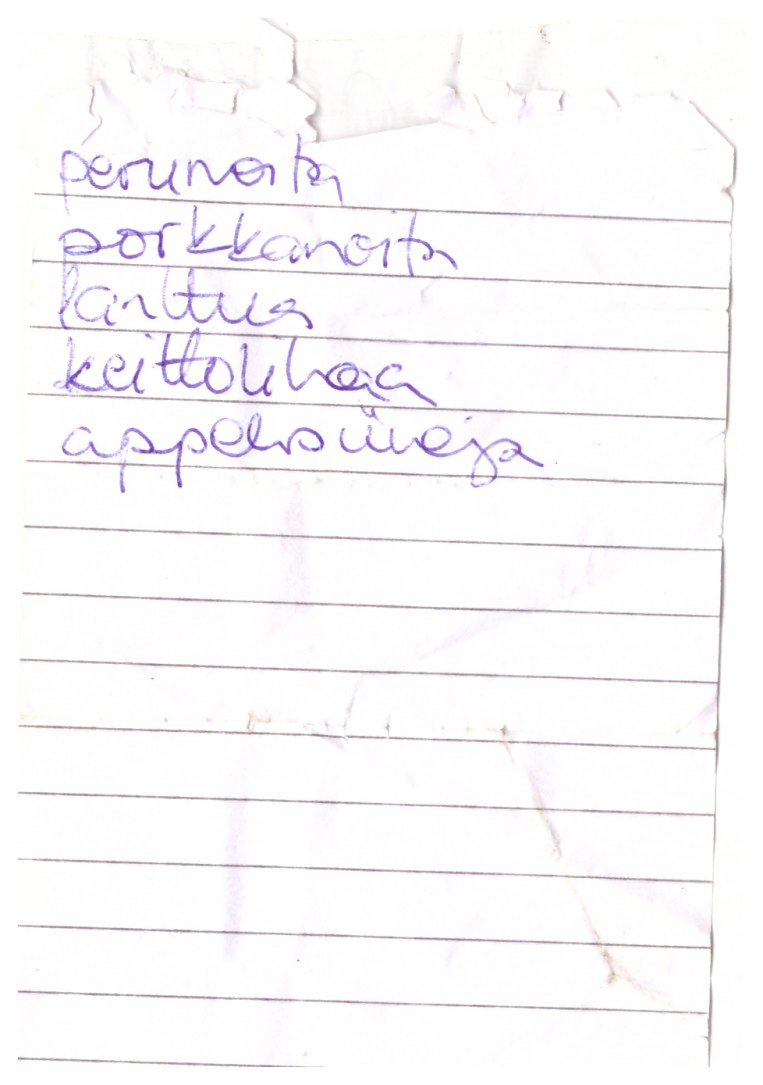 perunoita
porkkanoita
lanttua
keittolihaa
appelsiineja